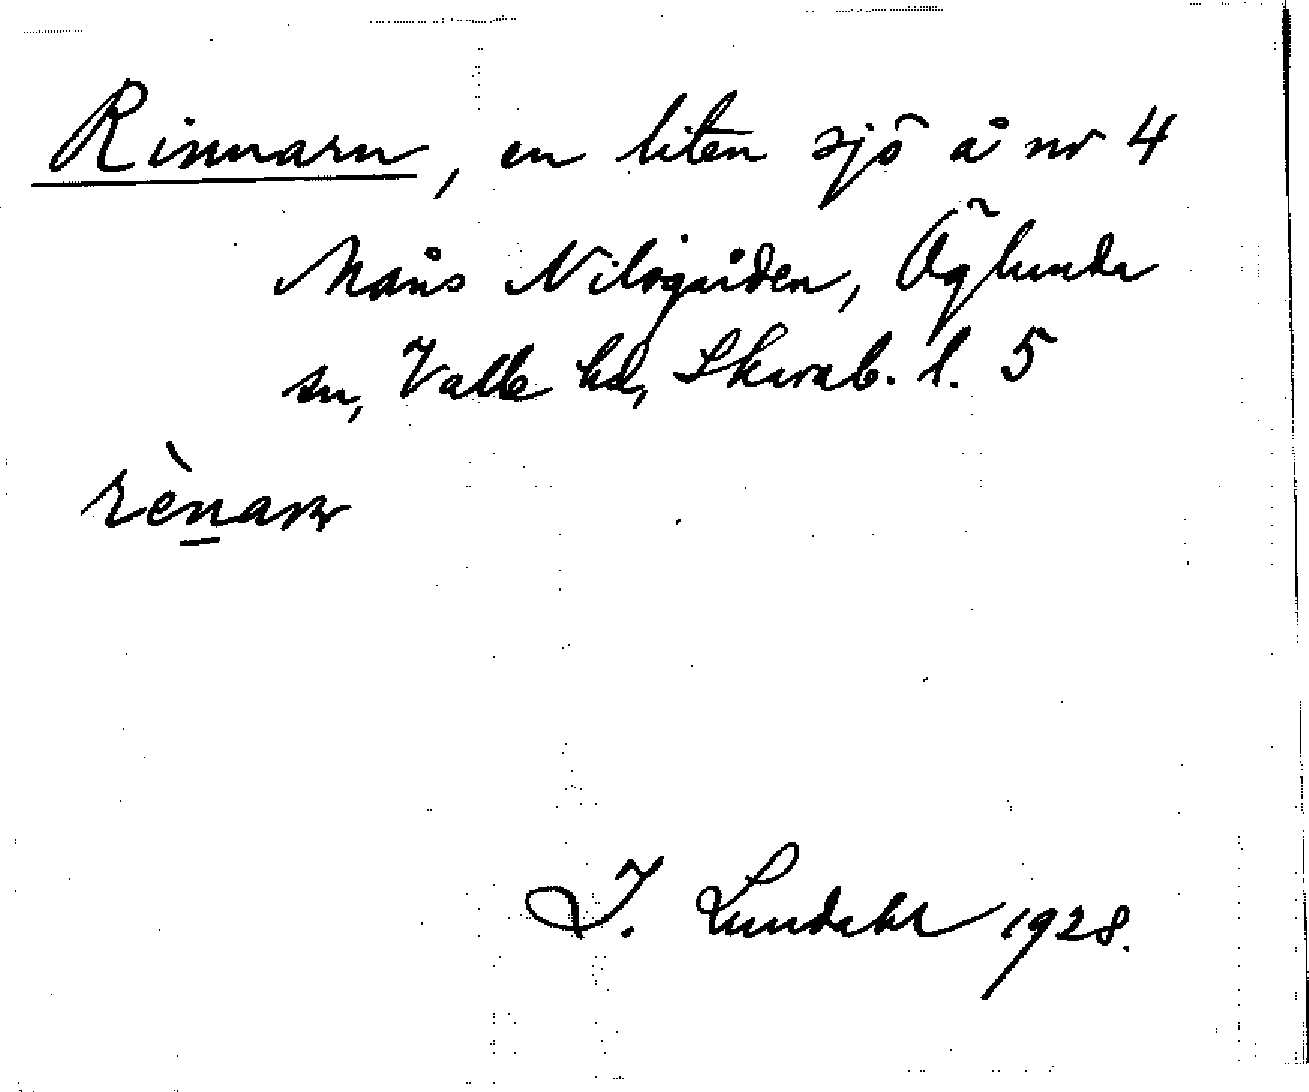 Rinnarn, en liten sjö å nr 4
Måns Nilsgården, Öglunda
sn, Valle hd, Skarab. l. 5
rènaɴ
I. Lundahl 1928.